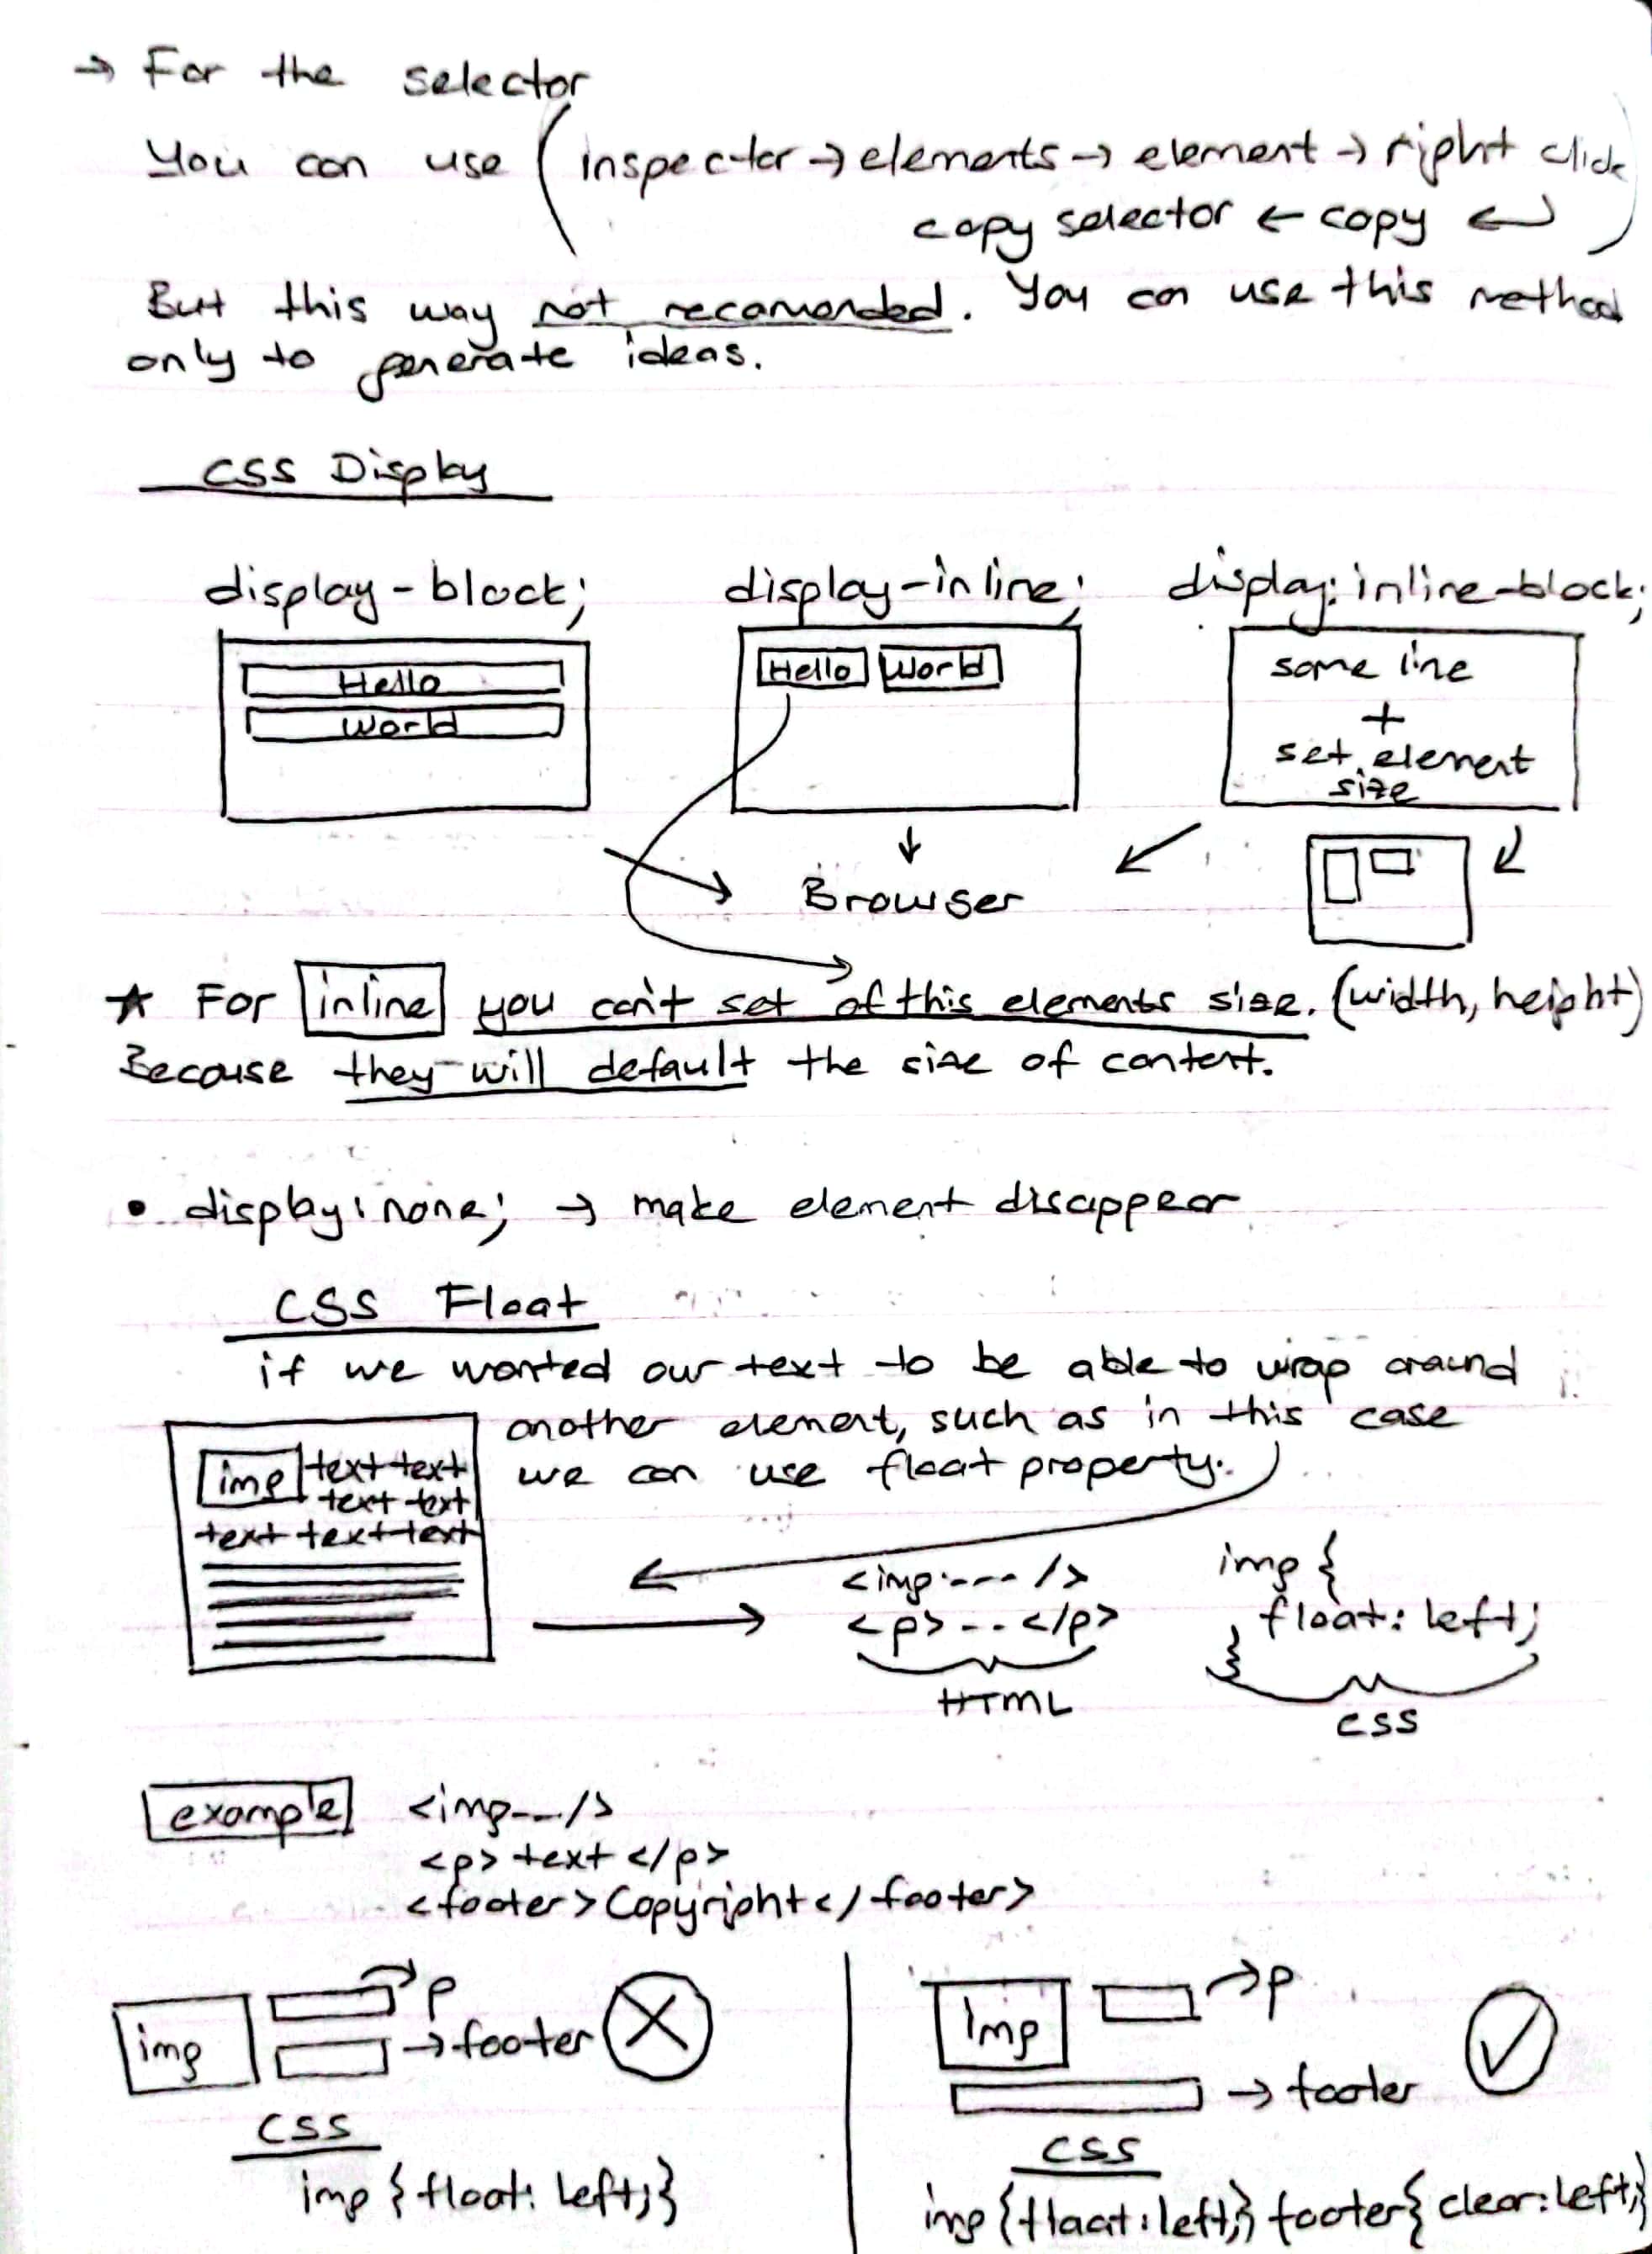 → For the selector
You can use (inspector → elements → element → right click
copy selector ← copy ↵)
But this way not recomended. You can use this method
only to generate ideas.
CSS Display
display-block; display-inline; display:inline-block;
Hello
World
Hello World
same line
+
set element
size
Browser
★ For inline you can't set of this elements size. (width, height)
Because they will default the size of content.
• display:none; → make element disappear
CSS Float
if we wanted our text to be able to wrap around
another element, such as in this case
we can use float property.
img text text
text text
text text text
<img --- />
<p> -- </p>
HTML
img {
float: left;
}
CSS
example <img--./>
<p> text </p>
<footer> Copyright </footer>
img → p
→ footer
CSS
img {float: left;}
Img → p
→ footer
CSS
img {float:left;} footer{clear:left;}